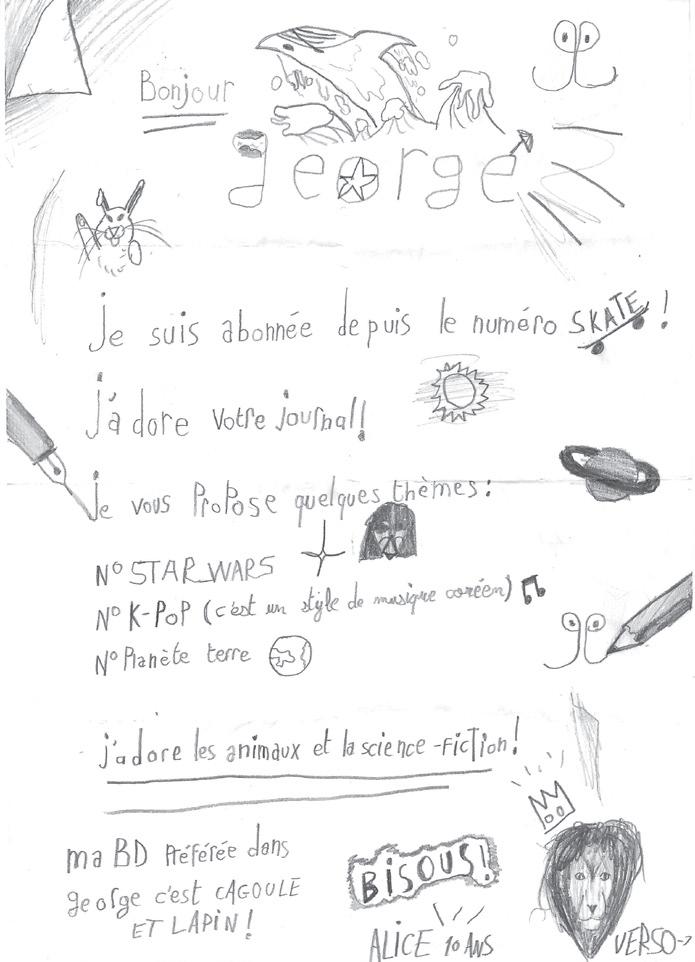 Bonjour
george
je suis abonnée depuis le numéro SKATE !
j'adore votre journal!
je vous propose quelques thèmes :
N° STAR WARS
N° K-POP (c'est un style de musique coréen)
N° Planète terre
j'adore les animaux et la science-fiction!
ma BD préférée dans
george c'est CAGOULE
ET LAPIN !
BISOUS!
ALICE 10 ANS
VERSO→